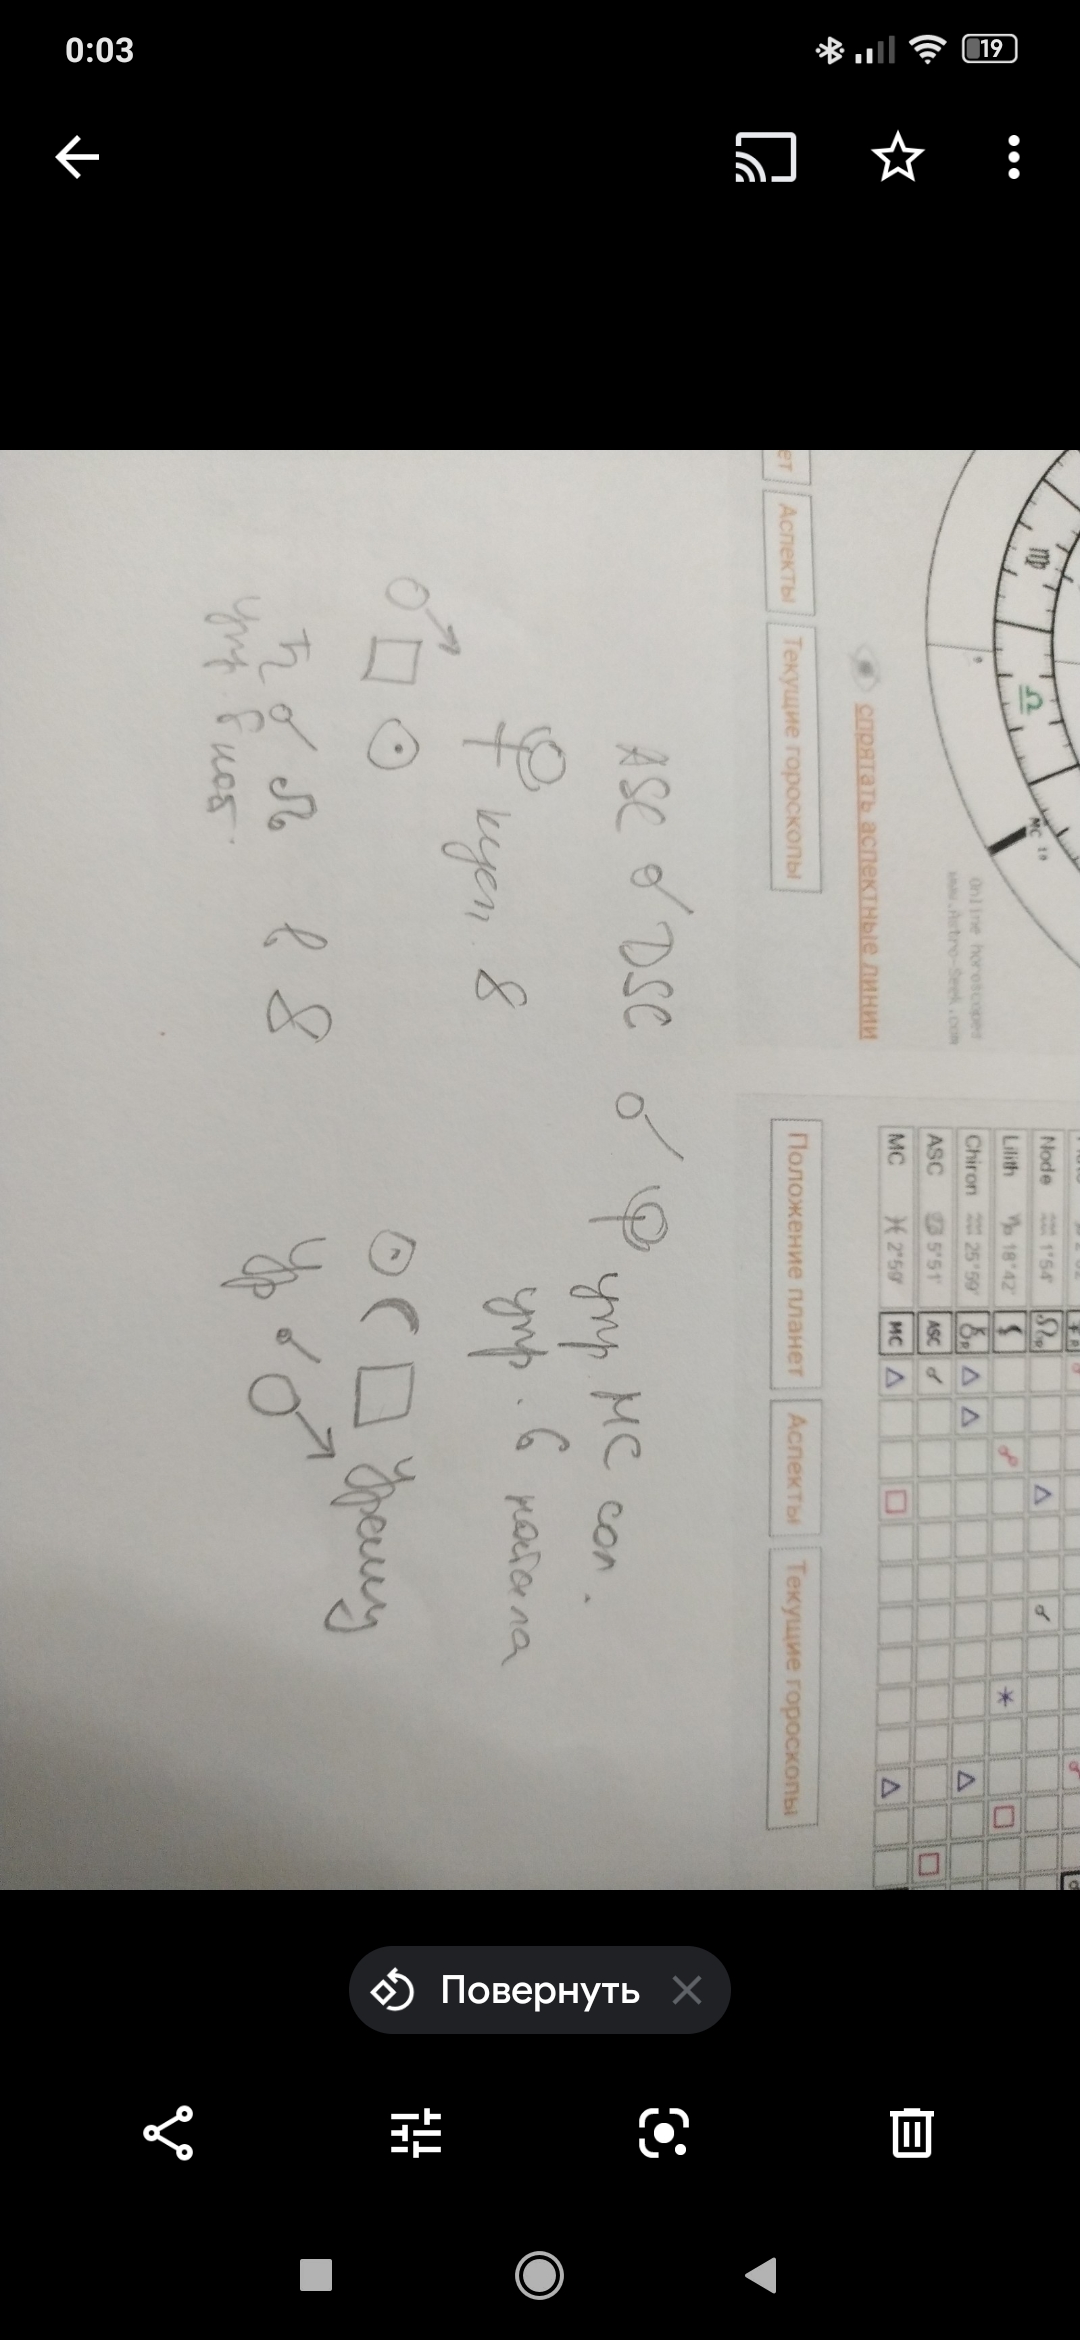 0:03
19
MC 1°
Online horoscopes
www.Astro-Seek.com
спрятать аспектные линии
ет Аспекты Текущие гороскопы
Node ♒ 1°54' ☊R △ ☌
Lilith ♑ 18°42' ⚸ ☍ ⚹ □
Chiron ♒ 25°59' ⚷R △ △ △
ASC ♋ 5°51' ASC ☌ □
MC ♓ 2°59' MC △ □ △
Положение планет Аспекты Текущие гороскопы
ASC ☌ DSC ☌ ♀ упр MC сол.
♀ 8 упр. 6 натала
♂ □ ☉ ☉ ☾ □ Урану
♄ ☌ ☊ в 8 Ур ☌ ♂
упр. 8
Повернуть